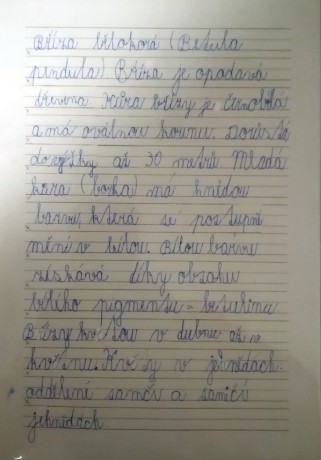 Bříza bělokorá (Betula
pendula) Bříza je opadavá
dřevina Kůra břízy je černobílá
a má oválnou korunu. Dorůstá
do výšky až 30 metrů. Mladá
kůra (borka) má hnědou
barvu, která se postupně
mění v bílou. Bílou barvu
získává díky obsahu
bílého pigmentu - betulinu
Břízy kvetou v dubnu až v
květnu. Květy v jehnědách.
oddělení samčí a samičí
jehnědách